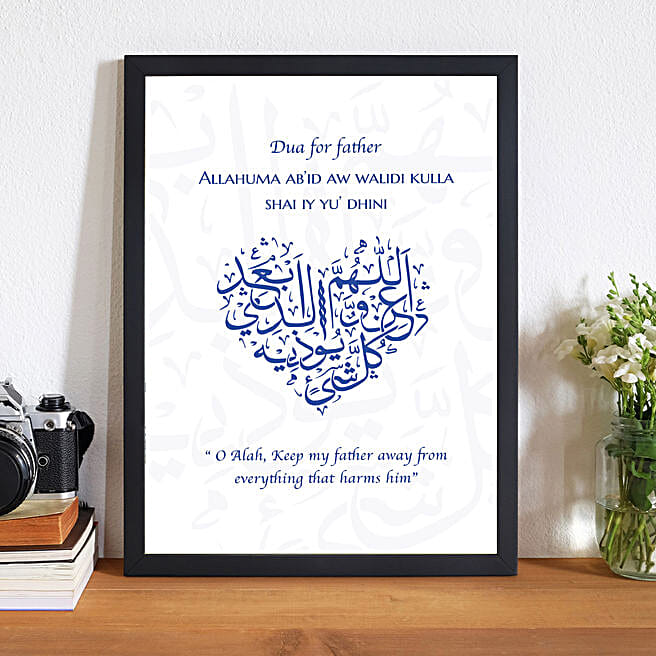 Dua for father
ALLAHUMA AB'ID AW WALIDI KULLA
SHAI IY YU' DHINI
اَللَّهُمَّ أَبْعِدْ
عن والدي
كُلَّ شَيْءٍ يُوْذِيهِ
“ O Alah, Keep my father away from
everything that harms him”